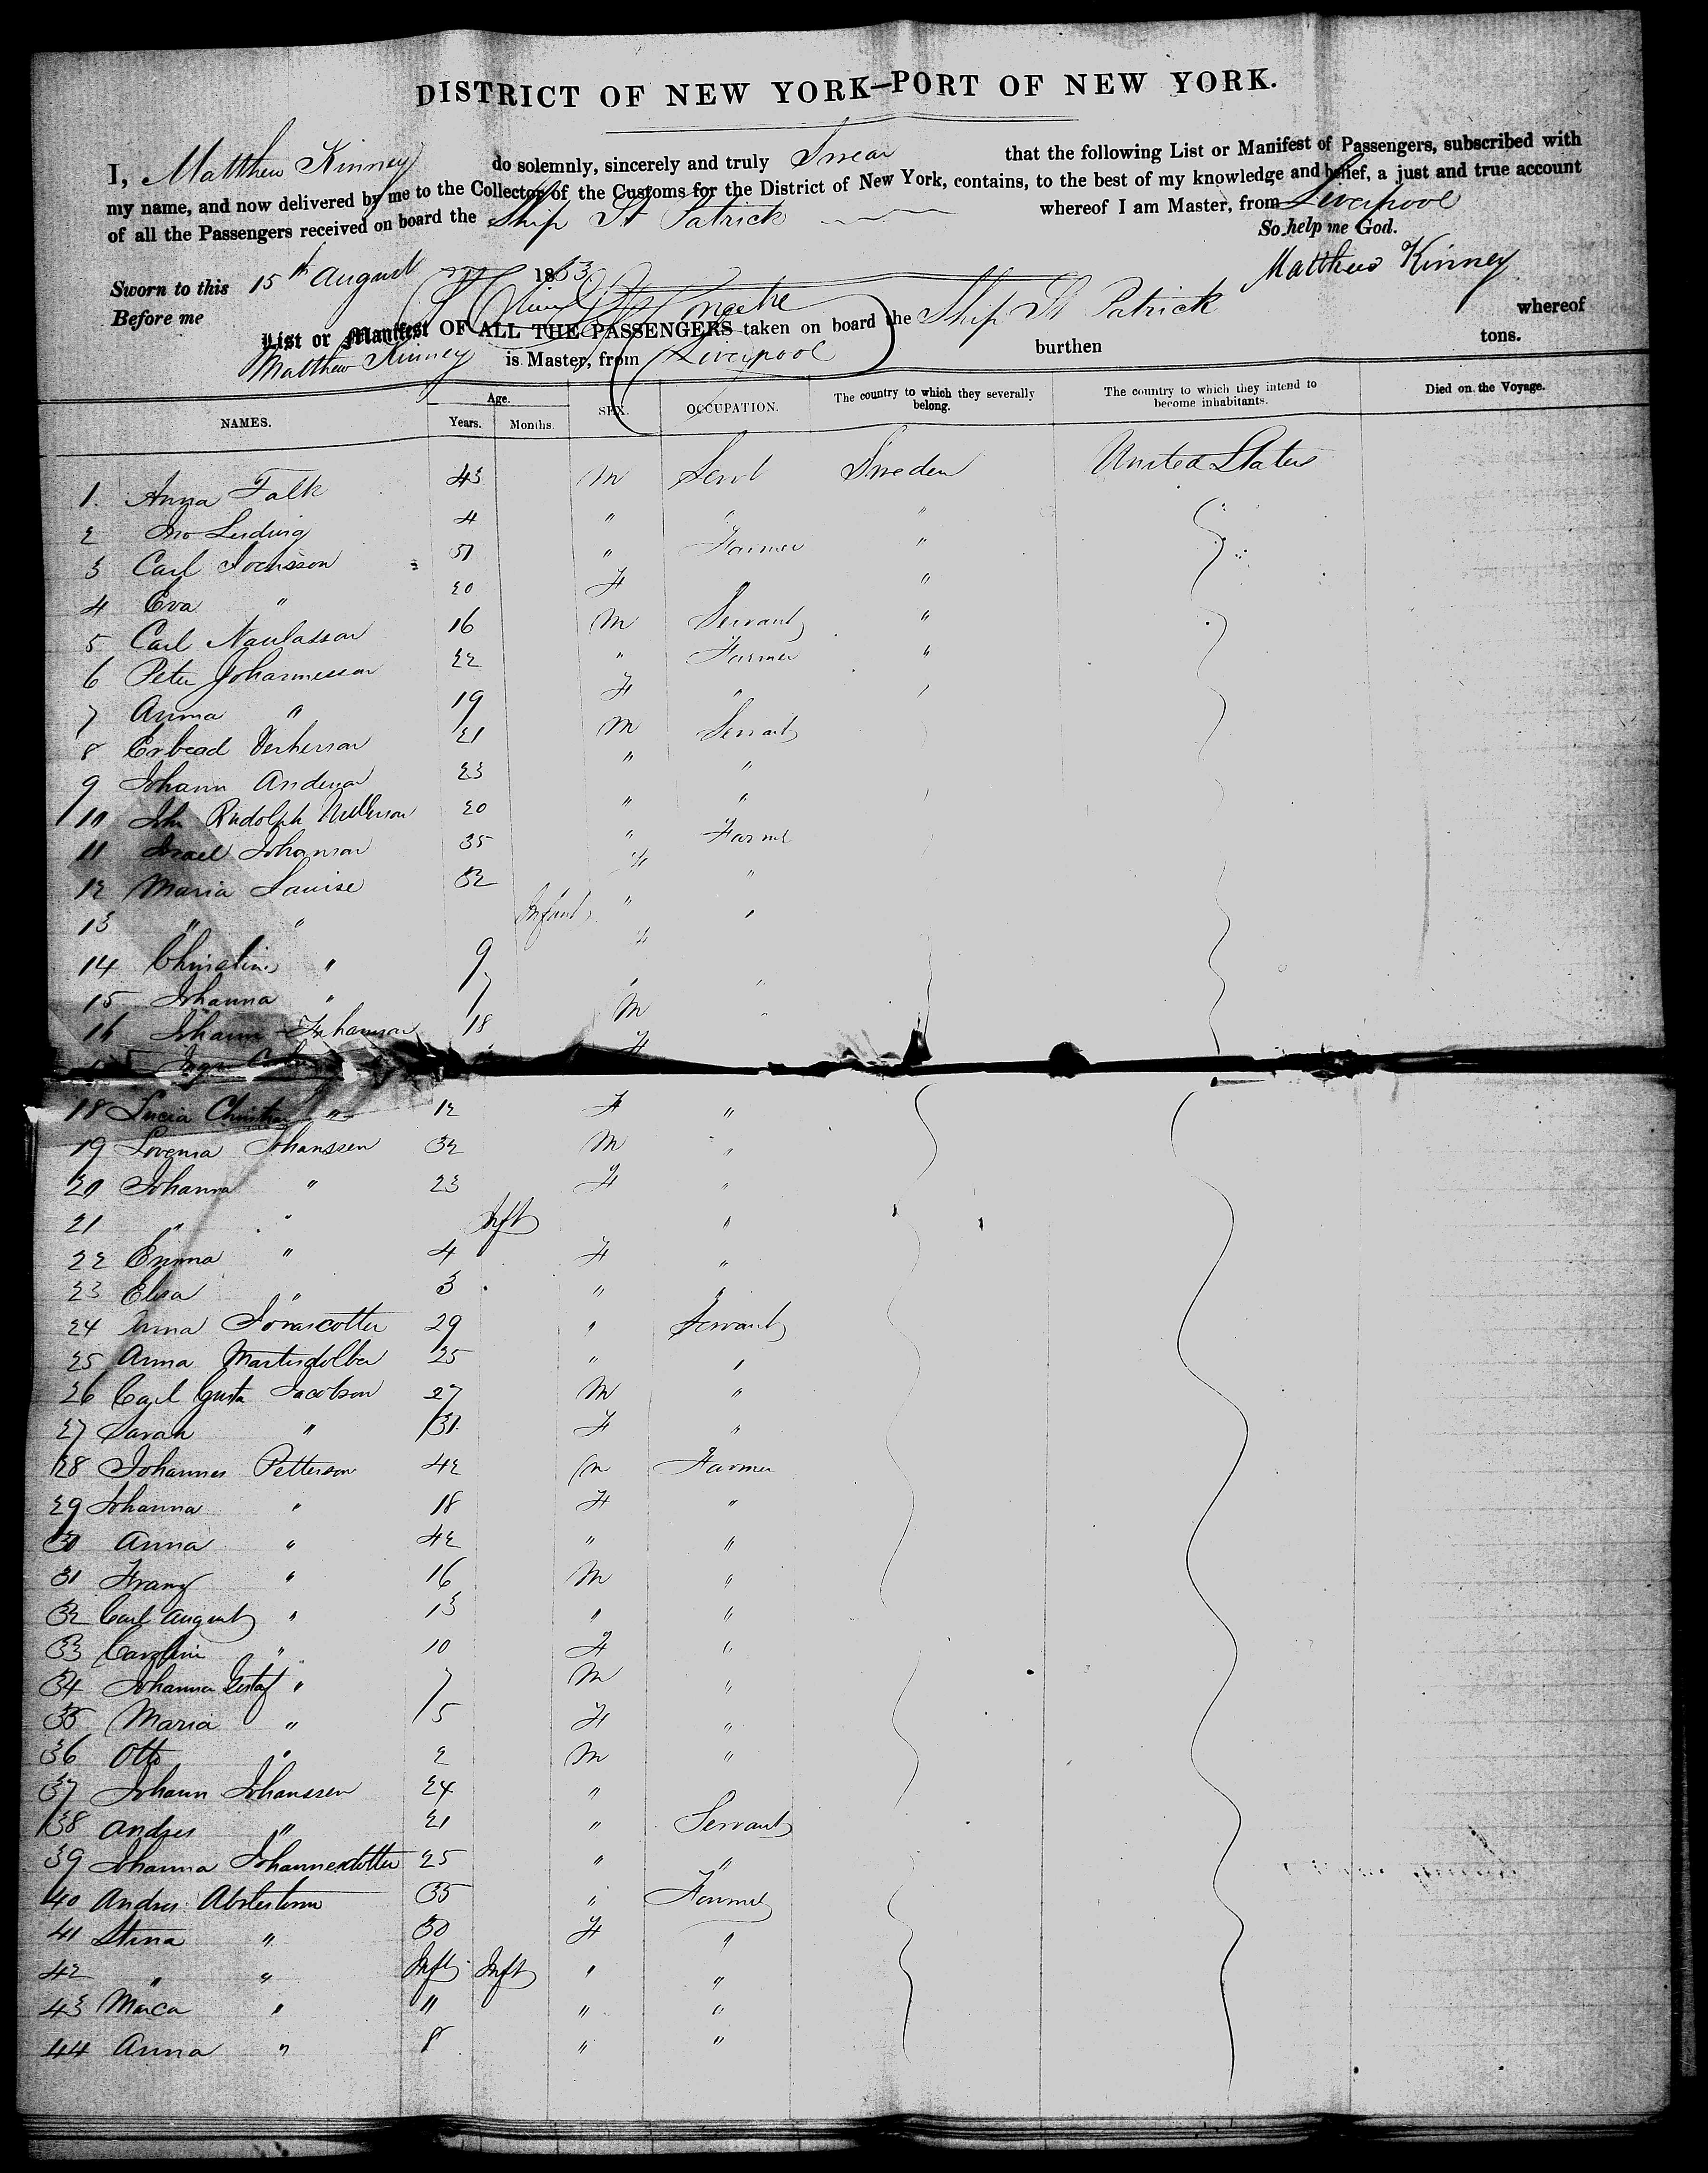 DISTRICT OF NEW YORK—PORT OF NEW YORK.
I, Matthew Kinney do solemnly, sincerely and truly Swear that the following List or Manifest of Passengers, subscribed with
my name, and now delivered by me to the Collector of the Customs for the District of New York, contains, to the best of my knowledge and belief, a just and true account
of all the Passengers received on board the Ship St Patrick whereof I am Master, from Liverpool
So help me God.
Sworn to this 15th August 1853 Matthew Kinney
Before me
List or Manifest OF ALL THE PASSENGERS taken on board the Ship St Patrick whereof
Matthew Kinney is Master, from Liverpool burthen tons.
NAMES. Age. Years. Months. SEX. OCCUPATION. The country to which they severally belong. The country to which they intend to become inhabitants. Died on the Voyage.
1. Anna Falk 43 M Servt Sweden United States
2 Ludwig 4 " " "
3 Carl 51 " Farmer "
4 Eva " 20 F " "
5 Carl 16 M Servant "
6 Peter Johannesson 22 " Farmer "
7 Anna " 19 F " "
8 21 M Servant
9 Johann 23 " "
10 Joh Rudolph 20 " "
11 Israel Johanson 35 " Farme
12 Maria Louise 32 F "
13 " " Infant " "
14 Christine " 9 F
15 Johanna " 7 " "
16 Johann Johanson 18 M "
F
18 Lucia " 12 F "
19 Johanssen 32 M "
20 Johanna " 23 F "
21 " " Inft "
22 Emma " 4 F "
23 Elisa " 3 " "
24 Anna 29 " Servant
25 Anna 25 " "
26 Carl Gusta Jacobson 27 M "
27 Sarah " 31 F "
28 Johannes Petterson 42 M Farmer
29 Johanna " 18 F "
30 Anna " 42 " "
31 Franz " 16 M "
32 Carl August " 13 " "
33 Caroline " 10 F "
34 Johanna Gustaf " 7 M "
35 Maria " 5 F "
36 Otto " 2 M "
37 Johann Johanssen 24 "
38 Andres " 21 " Servant
39 Johanna Johannesdotter 25 " "
40 Andres 35 " Farmer
41 Stina " 30 F "
42 " " Inft Inft " "
43 " " " "
44 Anna " 8 " "